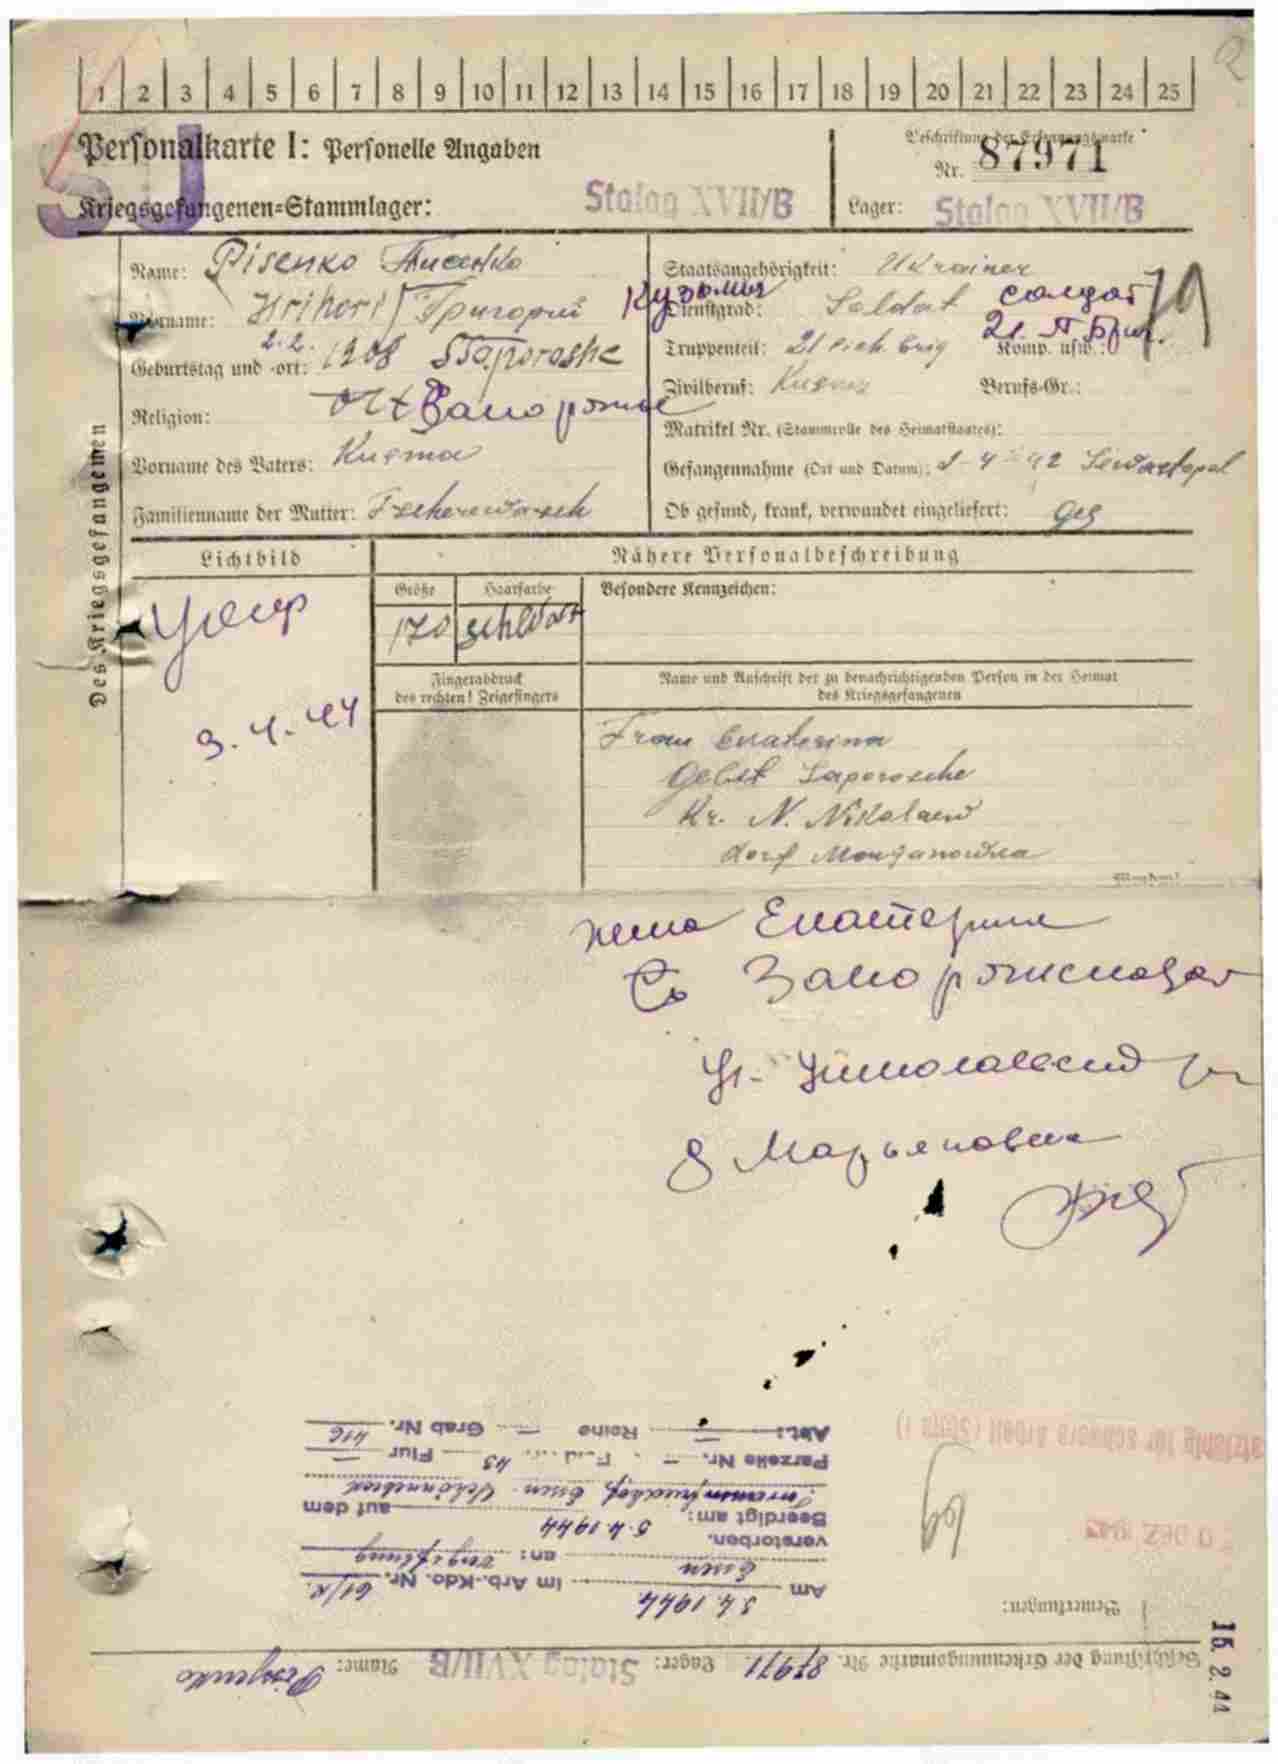 1 2 3 4 5 6 7 8 9 10 11 12 13 14 15 16 17 18 19 20 21 22 23 24 25
Personalkarte I: Personelle Angaben
SU
Kriegsgefangenen=Stammlager: Stalag XVII/B
Beschriftung der Erkennungsmarke
Nr. 87971
Lager: Stalag XVII/B
Des Kriegsgefangenen
Name: Pisenko Писенко
Vorname: Hrihori Григорий Кузьмич
Geburtstag und -ort: 2.2. 1908 Saporoshe
Religion: Запорожье
Vorname des Vaters: Kusma
Familienname der Mutter: Tscherewasch
Staatsangehörigkeit: Ukrainer
Dienstgrad: Soldat солдат
Truppenteil: 21 Komp. usw.: 21. П. Бриг.
Zivilberuf: Berufs-Gr.:
Matrikel Nr. (Stammrolle des Heimatstaates):
Gefangennahme (Ort und Datum): 42 Sewastopol
Ob gesund, krank, verwundet eingeliefert: ges
Lichtbild
Nähere Personalbeschreibung
Größe Haarfarbe Besondere Kennzeichen:
170 schwarz
умер
3.4.44
Fingerabdruck
des rechten! Zeigefingers
Name und Anschrift der zu benachrichtigenden Person in der Heimat
des Kriegsgefangenen
Frau Ekaterina
Gebit Saporosche
Kr. N. Nikolaew
dorf Marjanowka
жена Екатерина
Запорожская
д Марьяновка
Beschriftung der Erkennungsmarke Nr. 87971 Lager: Stalag XVII/B Name: Pissenko
Bemerkungen:
Am 3.4.1944 im Arb.-Kdo. Nr.
Essen an: Vergiftung
verstorben.
Beerdigt am: 5.4.1944 auf dem
Essen
Parzelle Nr. — Feld 43 Flur —
Abt.: — Reihe — Grab Nr. 416
DEZ
für schwere Arbeit
15. 2. 44